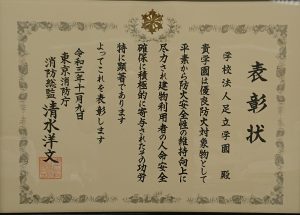 表彰状
学校法人足立学園 殿
貴学園は優良防火対象物として
平素から防火安全性の維持向上に
尽力され建物利用者の人命安全
確保に積極的に寄与されたその功労
特に顕著であります
よってこれを表彰します
令和三年十一月九日
東京消防庁
消防総監 清水洋文